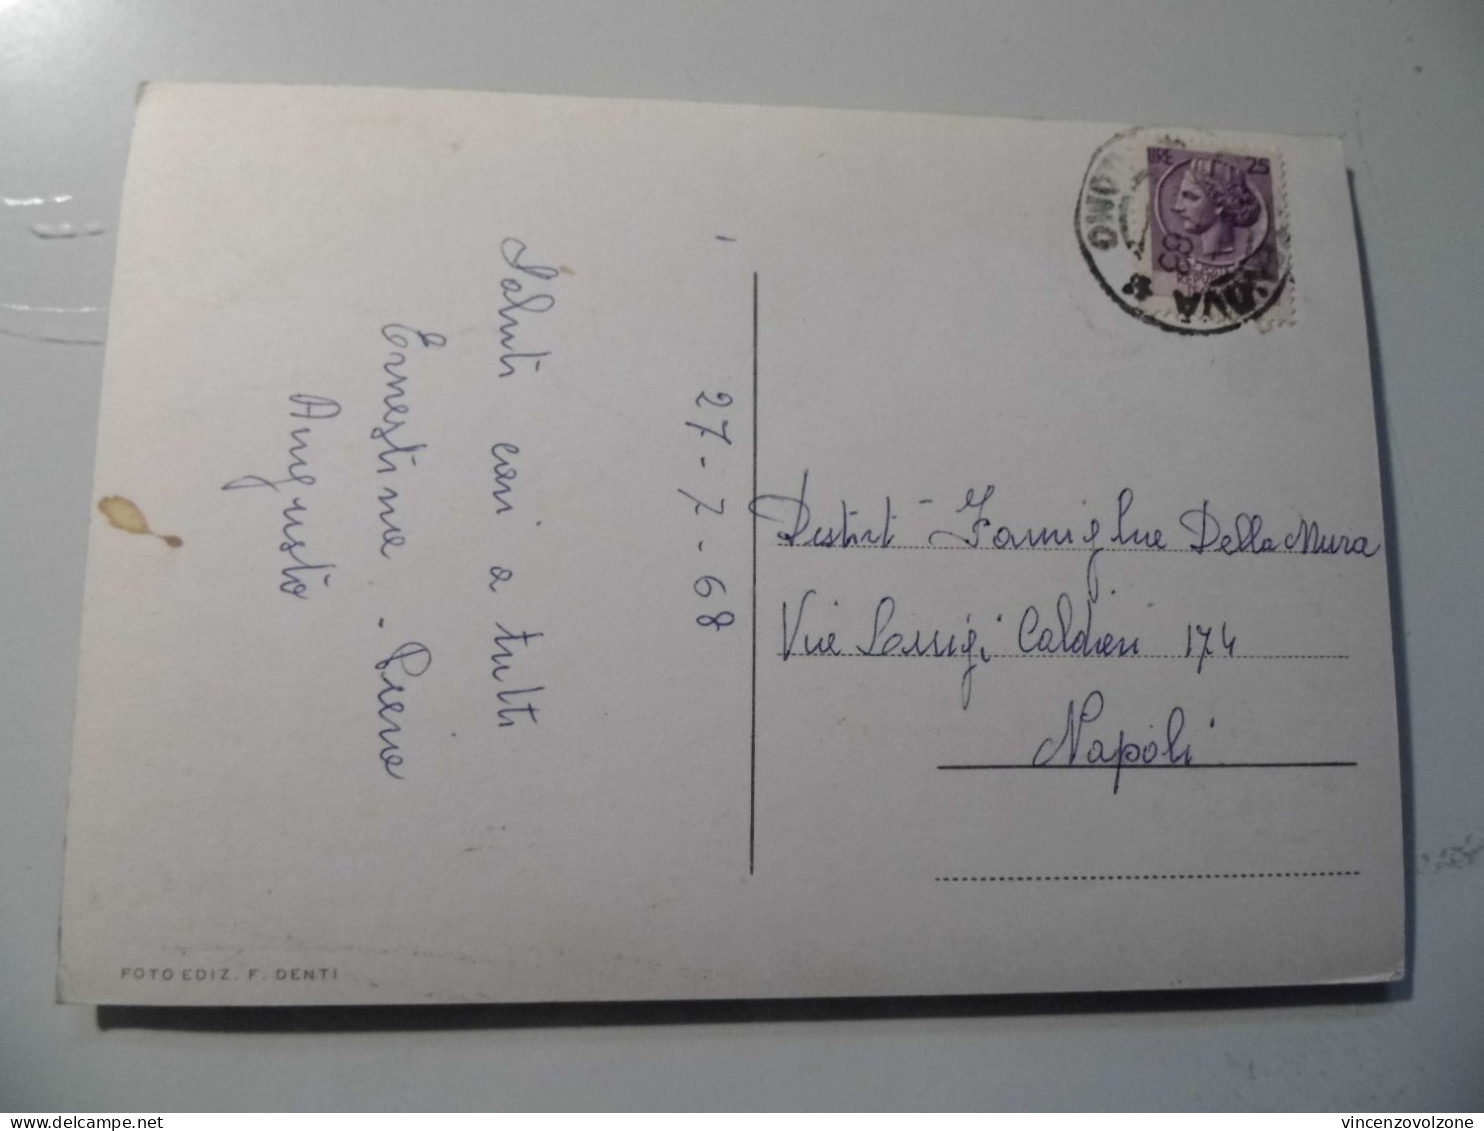 27-7-68
Saluti cari a tutti
Ernestina - Piera
Augusto
Distinti - Famiglia Della Mura
Via Luigi Caldieri 174
Napoli
LIRE 25
68
FOTO EDIZ. F. DENTI
vincenzovolzone